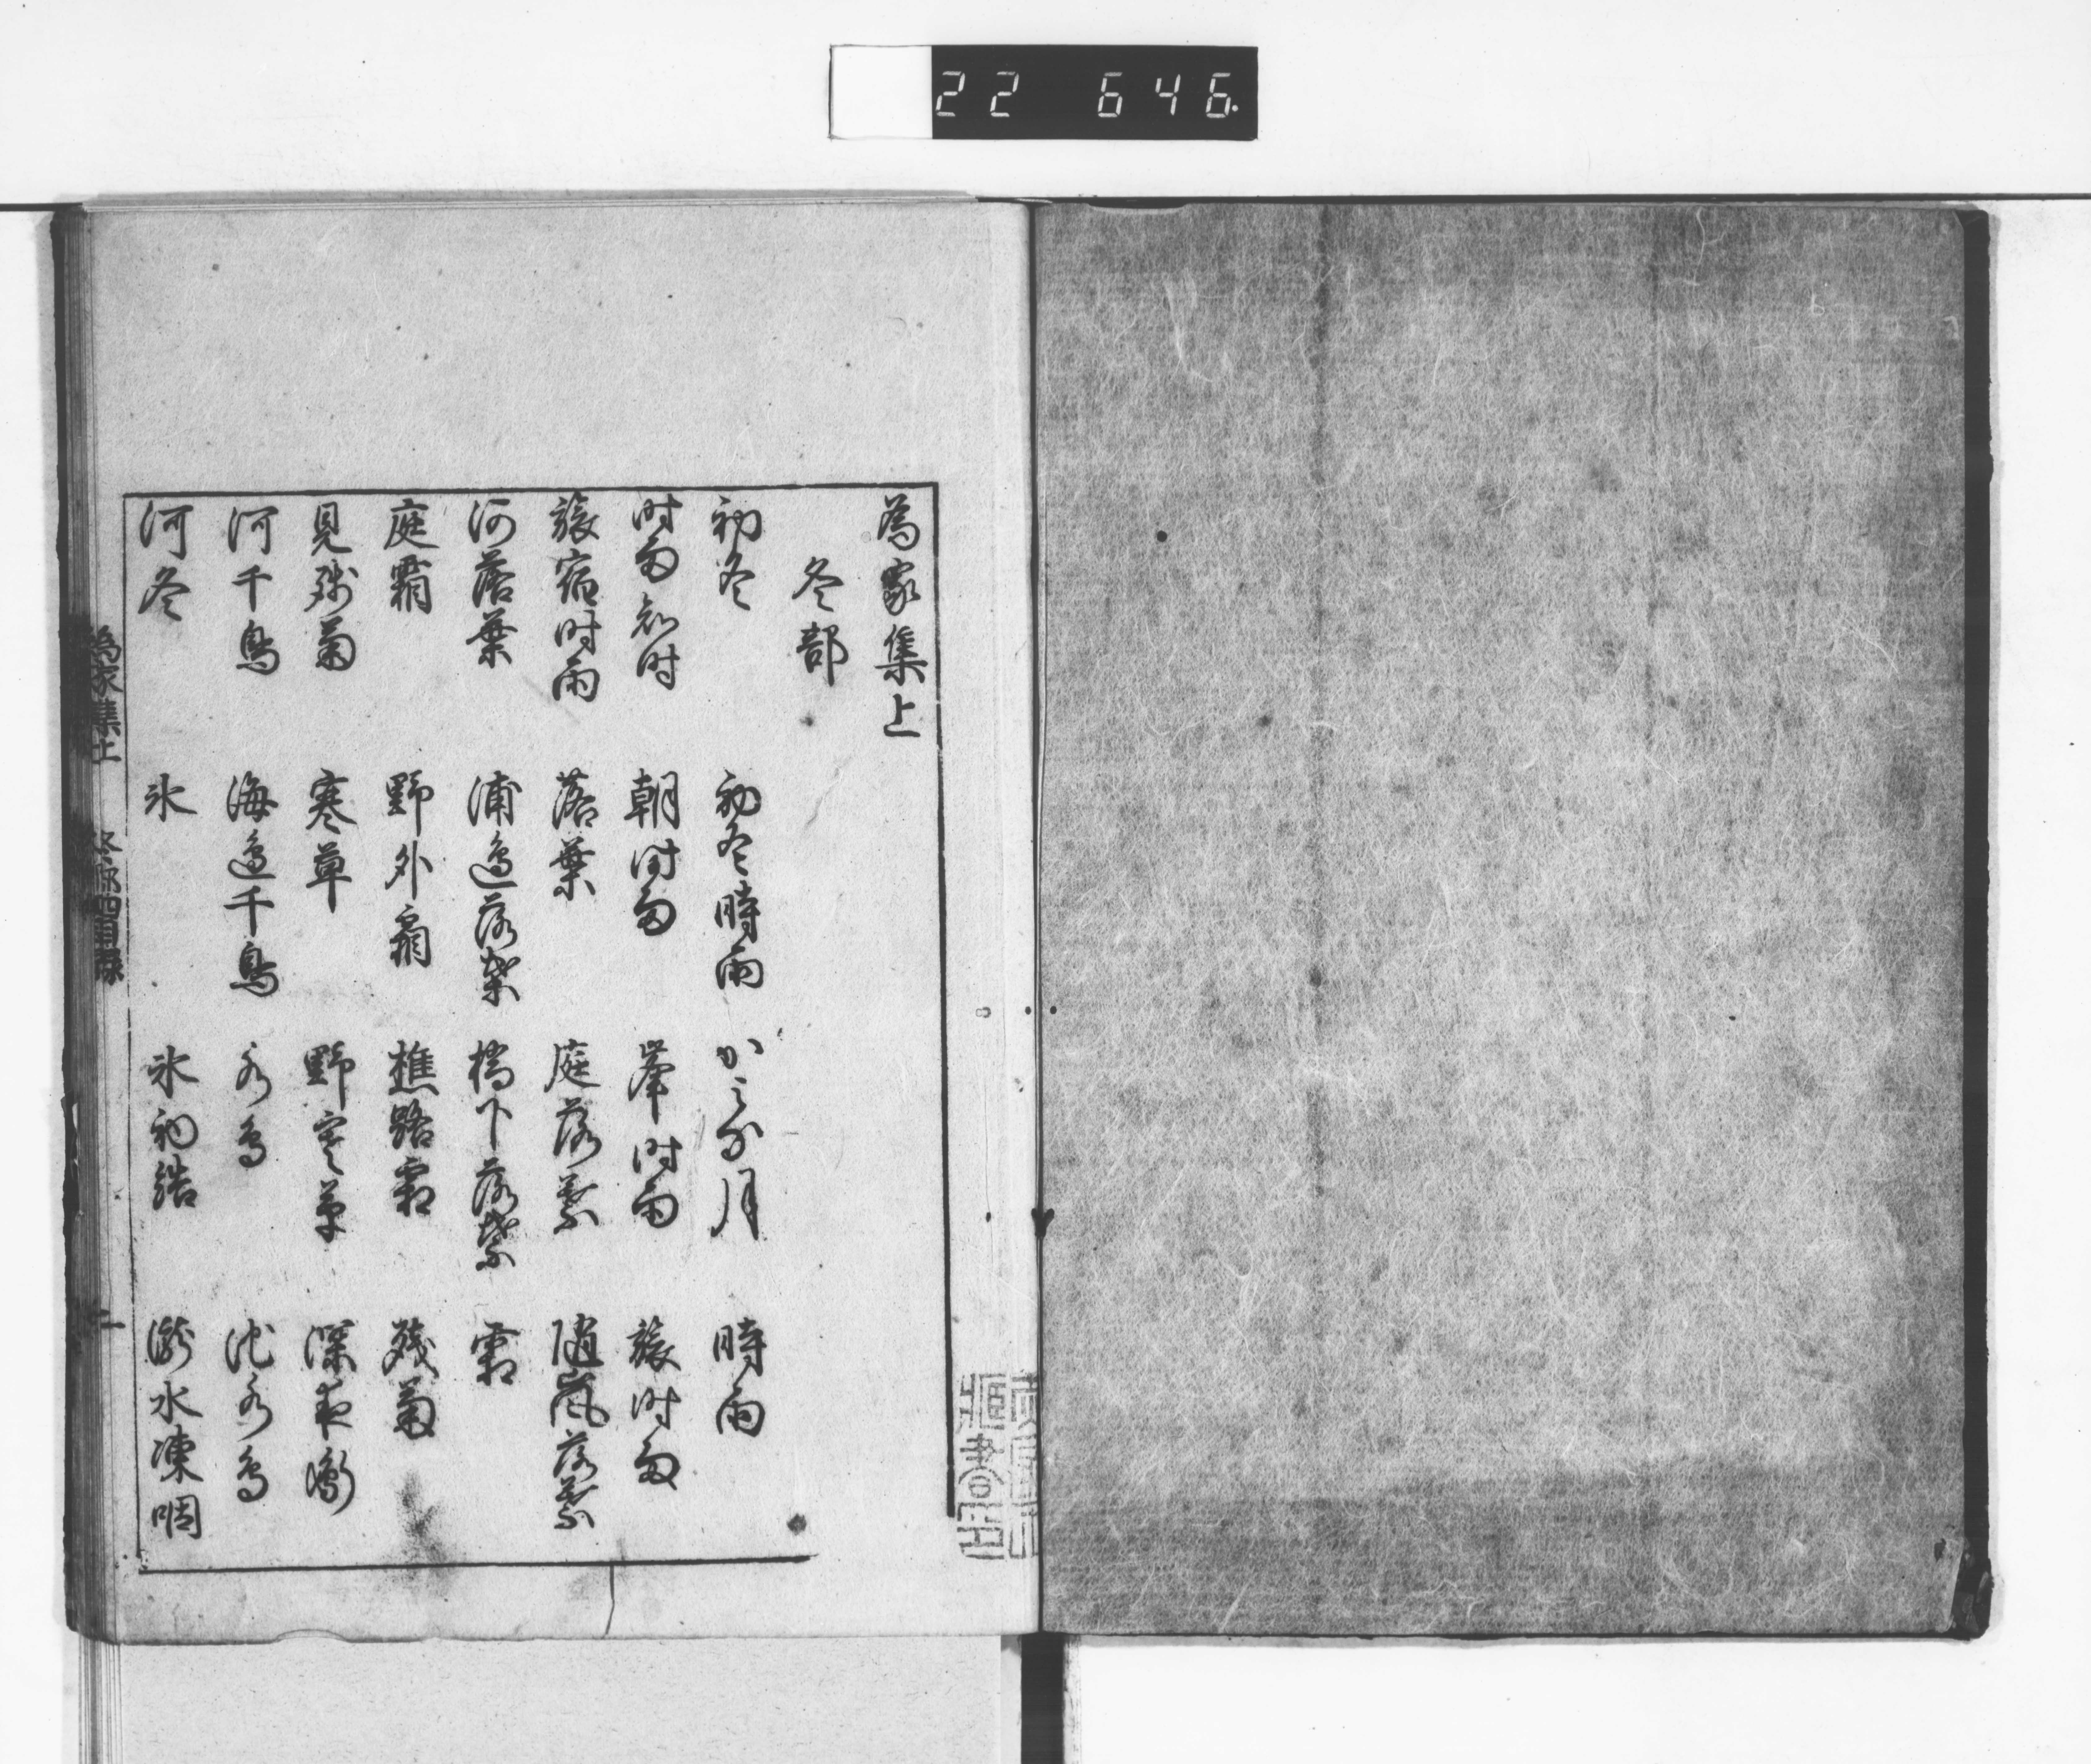 22 646
為家集上
冬部
初冬 初冬時雨 かみな月 時雨
時雨知時 朝時雨 峯時雨 旅時雨
旅宿時雨 落葉 庭落葉 随嵐落葉
河落葉 浦邊落葉 橋下落葉 霜
庭霜 野外霜 樵路霜 残菊
見残菊 寒草 野寒草 深夜鵆
河千鳥 海邊千鳥 水鳥 池水鳥
河冬 氷 氷初結 瀧水凍咽
為家集上 冬部 目録 二